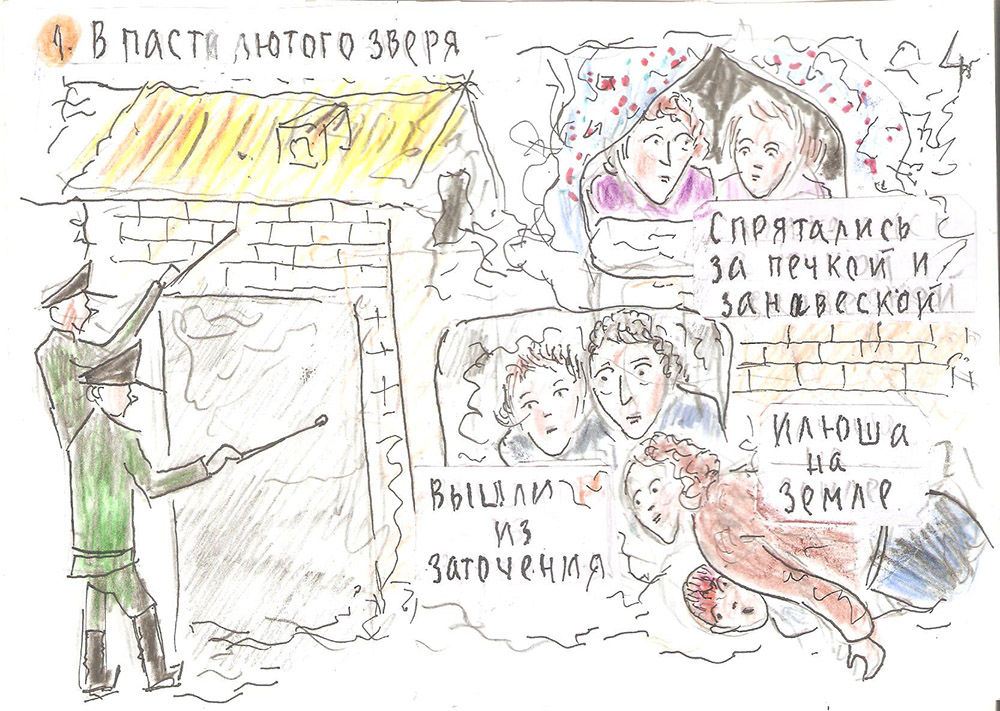 1. В ПАСТИ ЛЮТОГО ЗВЕРЯ
4
СПРЯТАЛИСЬ
ЗА ПЕЧКОЙ И
ЗАНАВЕСКОЙ
ИЛЮША
НА
ЗЕМЛЕ
ВЫШЛИ
ИЗ
ЗАТОЧЕНИЯ